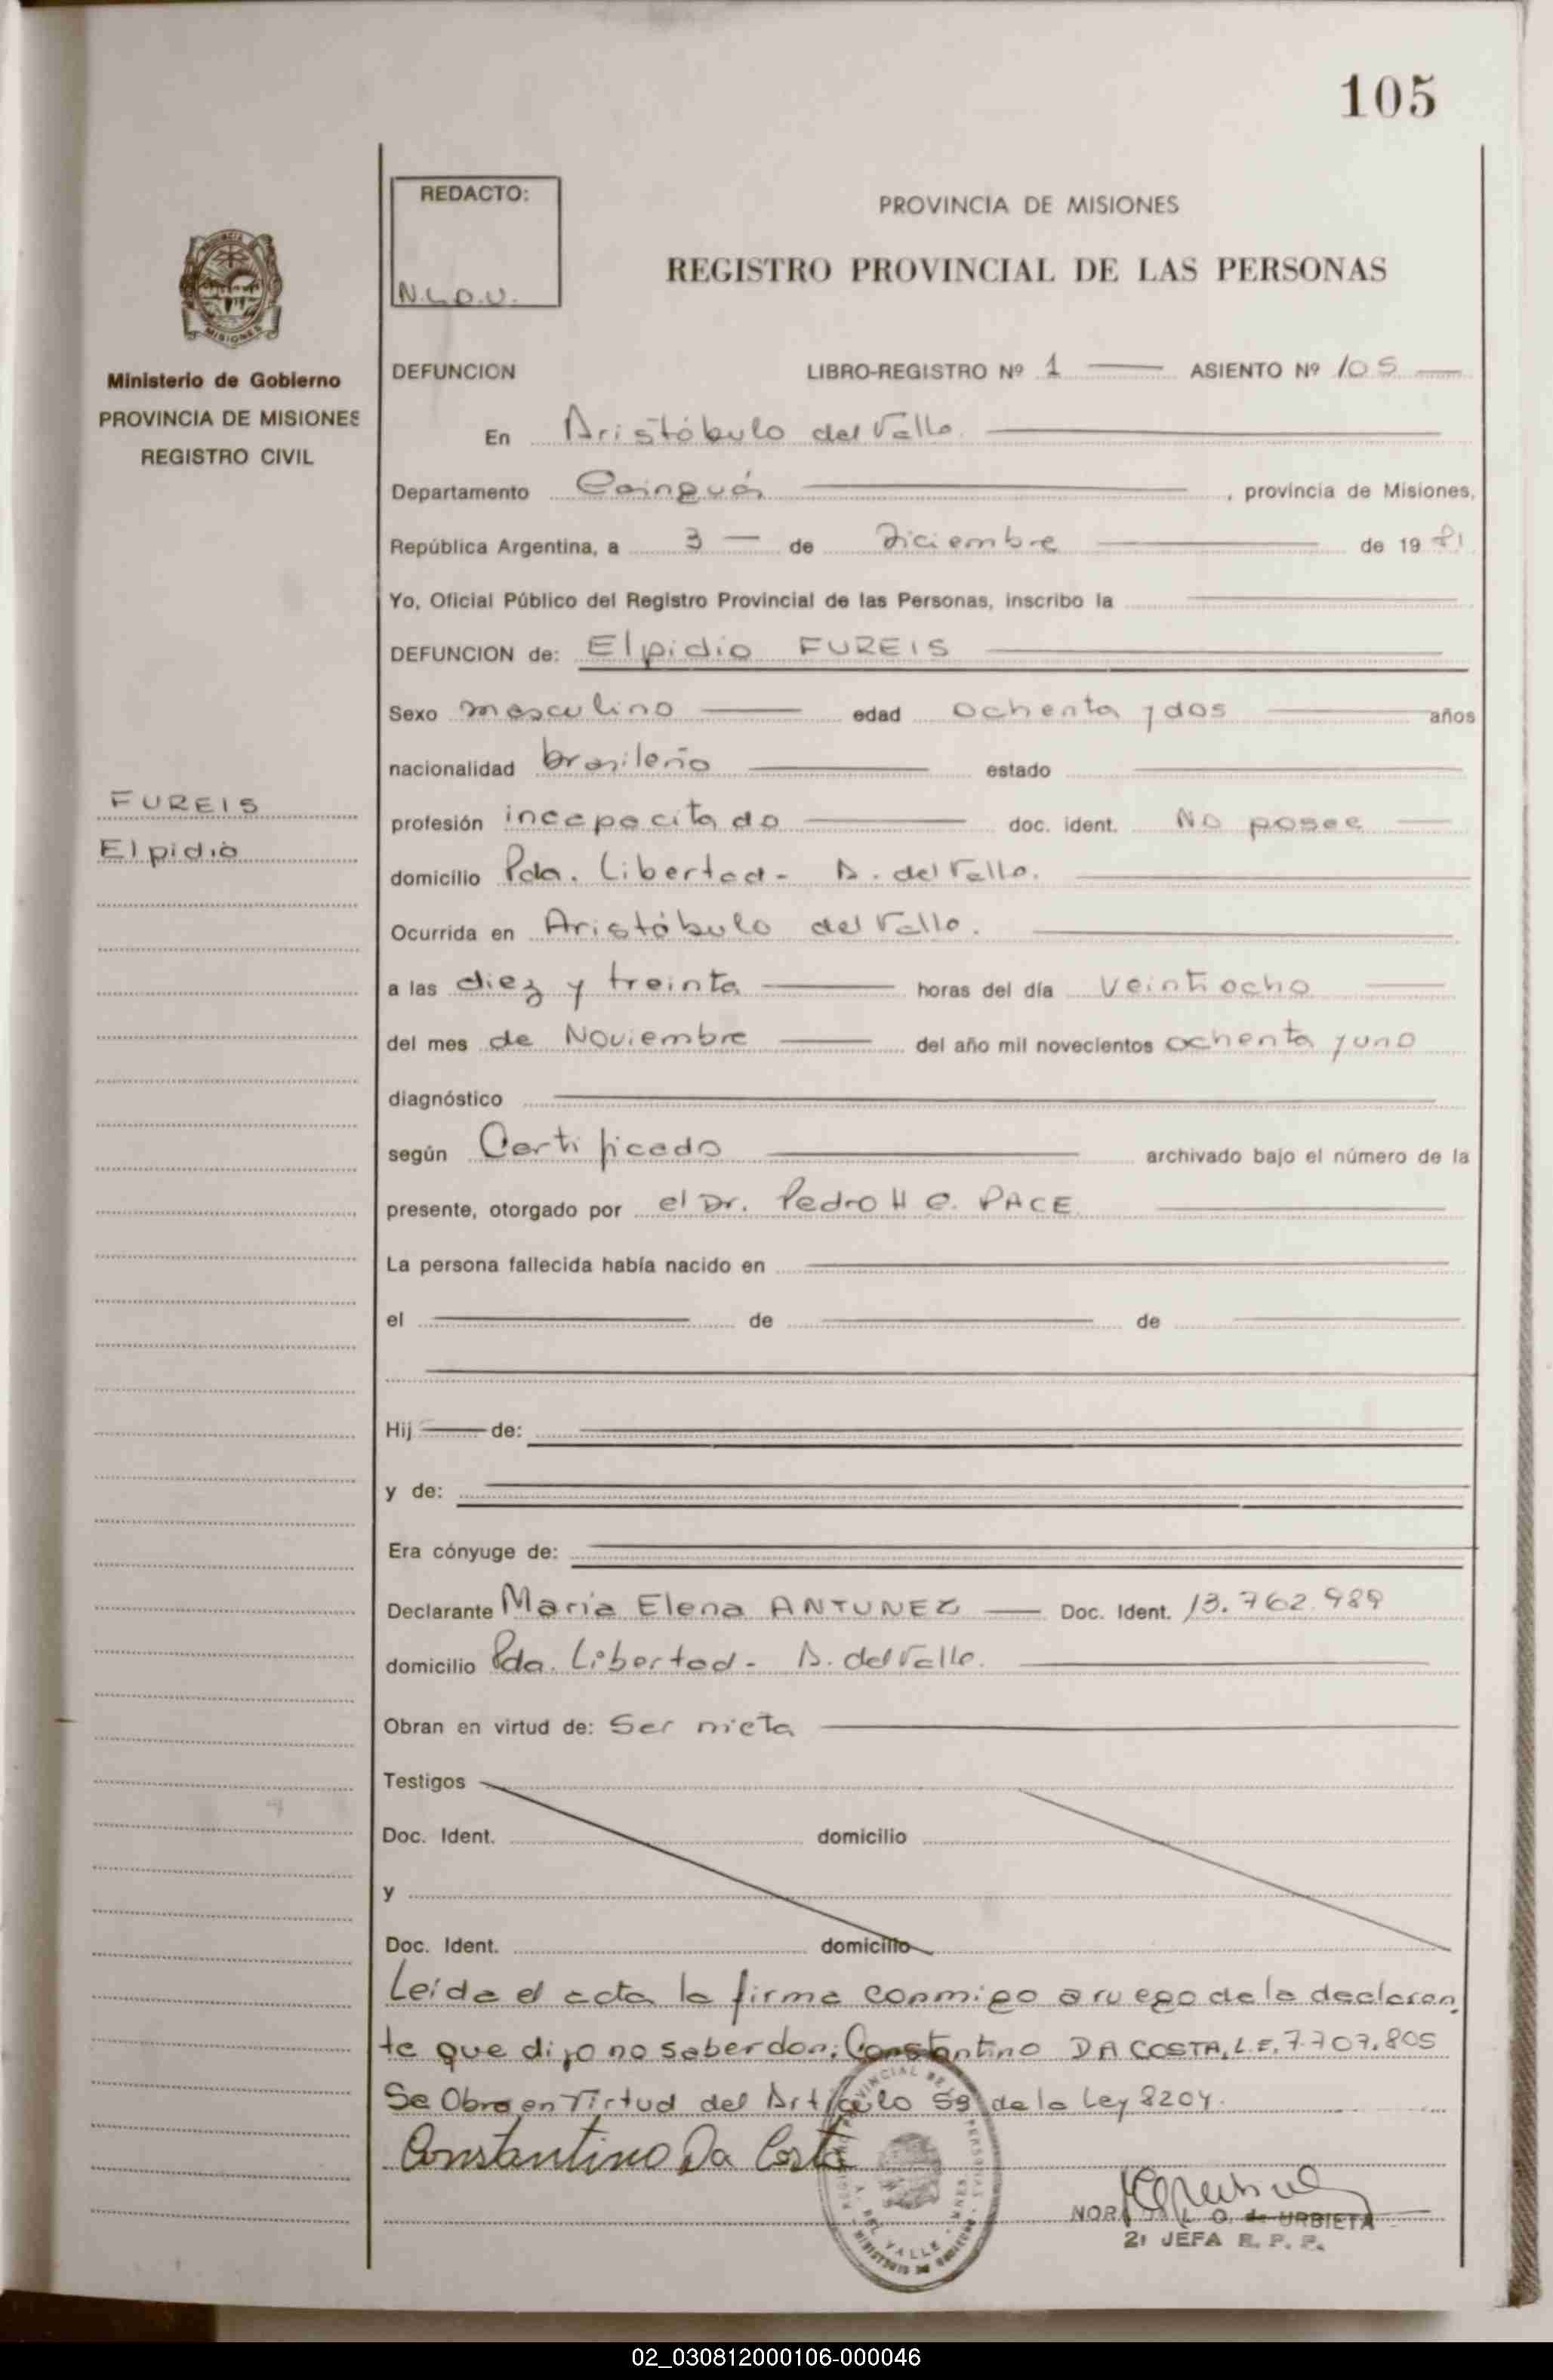 105
REDACTO:
N.L.O.U.
PROVINCIA DE MISIONES
REGISTRO PROVINCIAL DE LAS PERSONAS
Ministerio de Gobierno
PROVINCIA DE MISIONES
REGISTRO CIVIL
DEFUNCION LIBRO-REGISTRO Nº 1 ASIENTO Nº 105
En Aristóbulo del Valle.
Departamento Cainguás, provincia de Misiones,
República Argentina, a 3 de Diciembre de 1981
Yo, Oficial Público del Registro Provincial de las Personas, inscribo la
DEFUNCION de: Elpidio FUREIS
Sexo masculino edad ochenta y dos años
nacionalidad brasileño estado
FUREIS
Elpidio
profesión incapacitado doc. ident. No posee
domicilio Pda. Libertad - A. del Valle.
Ocurrida en Aristóbulo del Valle.
a las diez y treinta horas del día veintiocho
del mes de Noviembre del año mil novecientos ochenta y uno
diagnóstico
según Certificado archivado bajo el número de la
presente, otorgado por el Dr. Pedro H C. PACE
La persona fallecida había nacido en
el de de
Hij de:
y de:
Era cónyuge de:
Declarante María Elena ANTUNEZ Doc. Ident. 13.762.989
domicilio Pda. Libertad - A. del Valle.
Obran en virtud de: Ser nieta
Testigos
Doc. Ident. domicilio
y
Doc. Ident. domicilio
Leída el acta la firma conmigo a ruego de la declaran
te que dijo no saber don: Constantino DA COSTA, L.E. 7.707.805
Se Obra en Virtud del Artículo 59 de la Ley 8204.
Constantino Da Costa
NORA L. O. de URBIETA
2ª JEFA R. P. P.
02_030812000106-000046